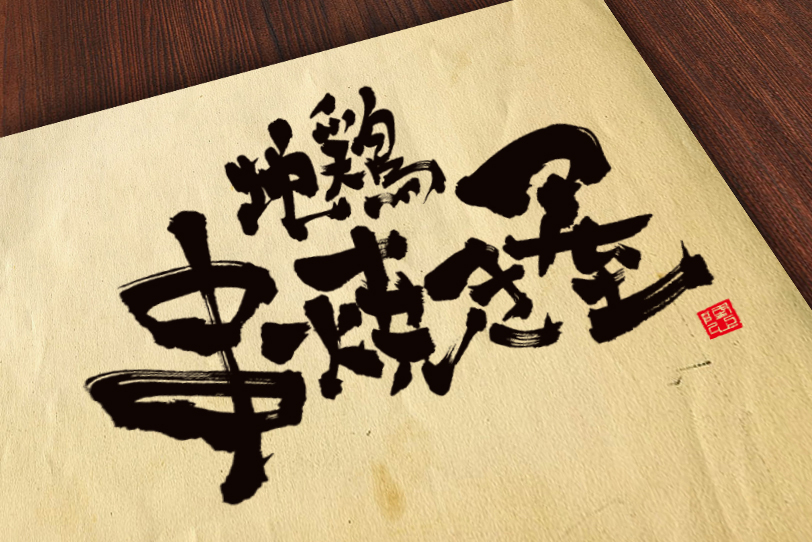 地鶏
串焼き屋